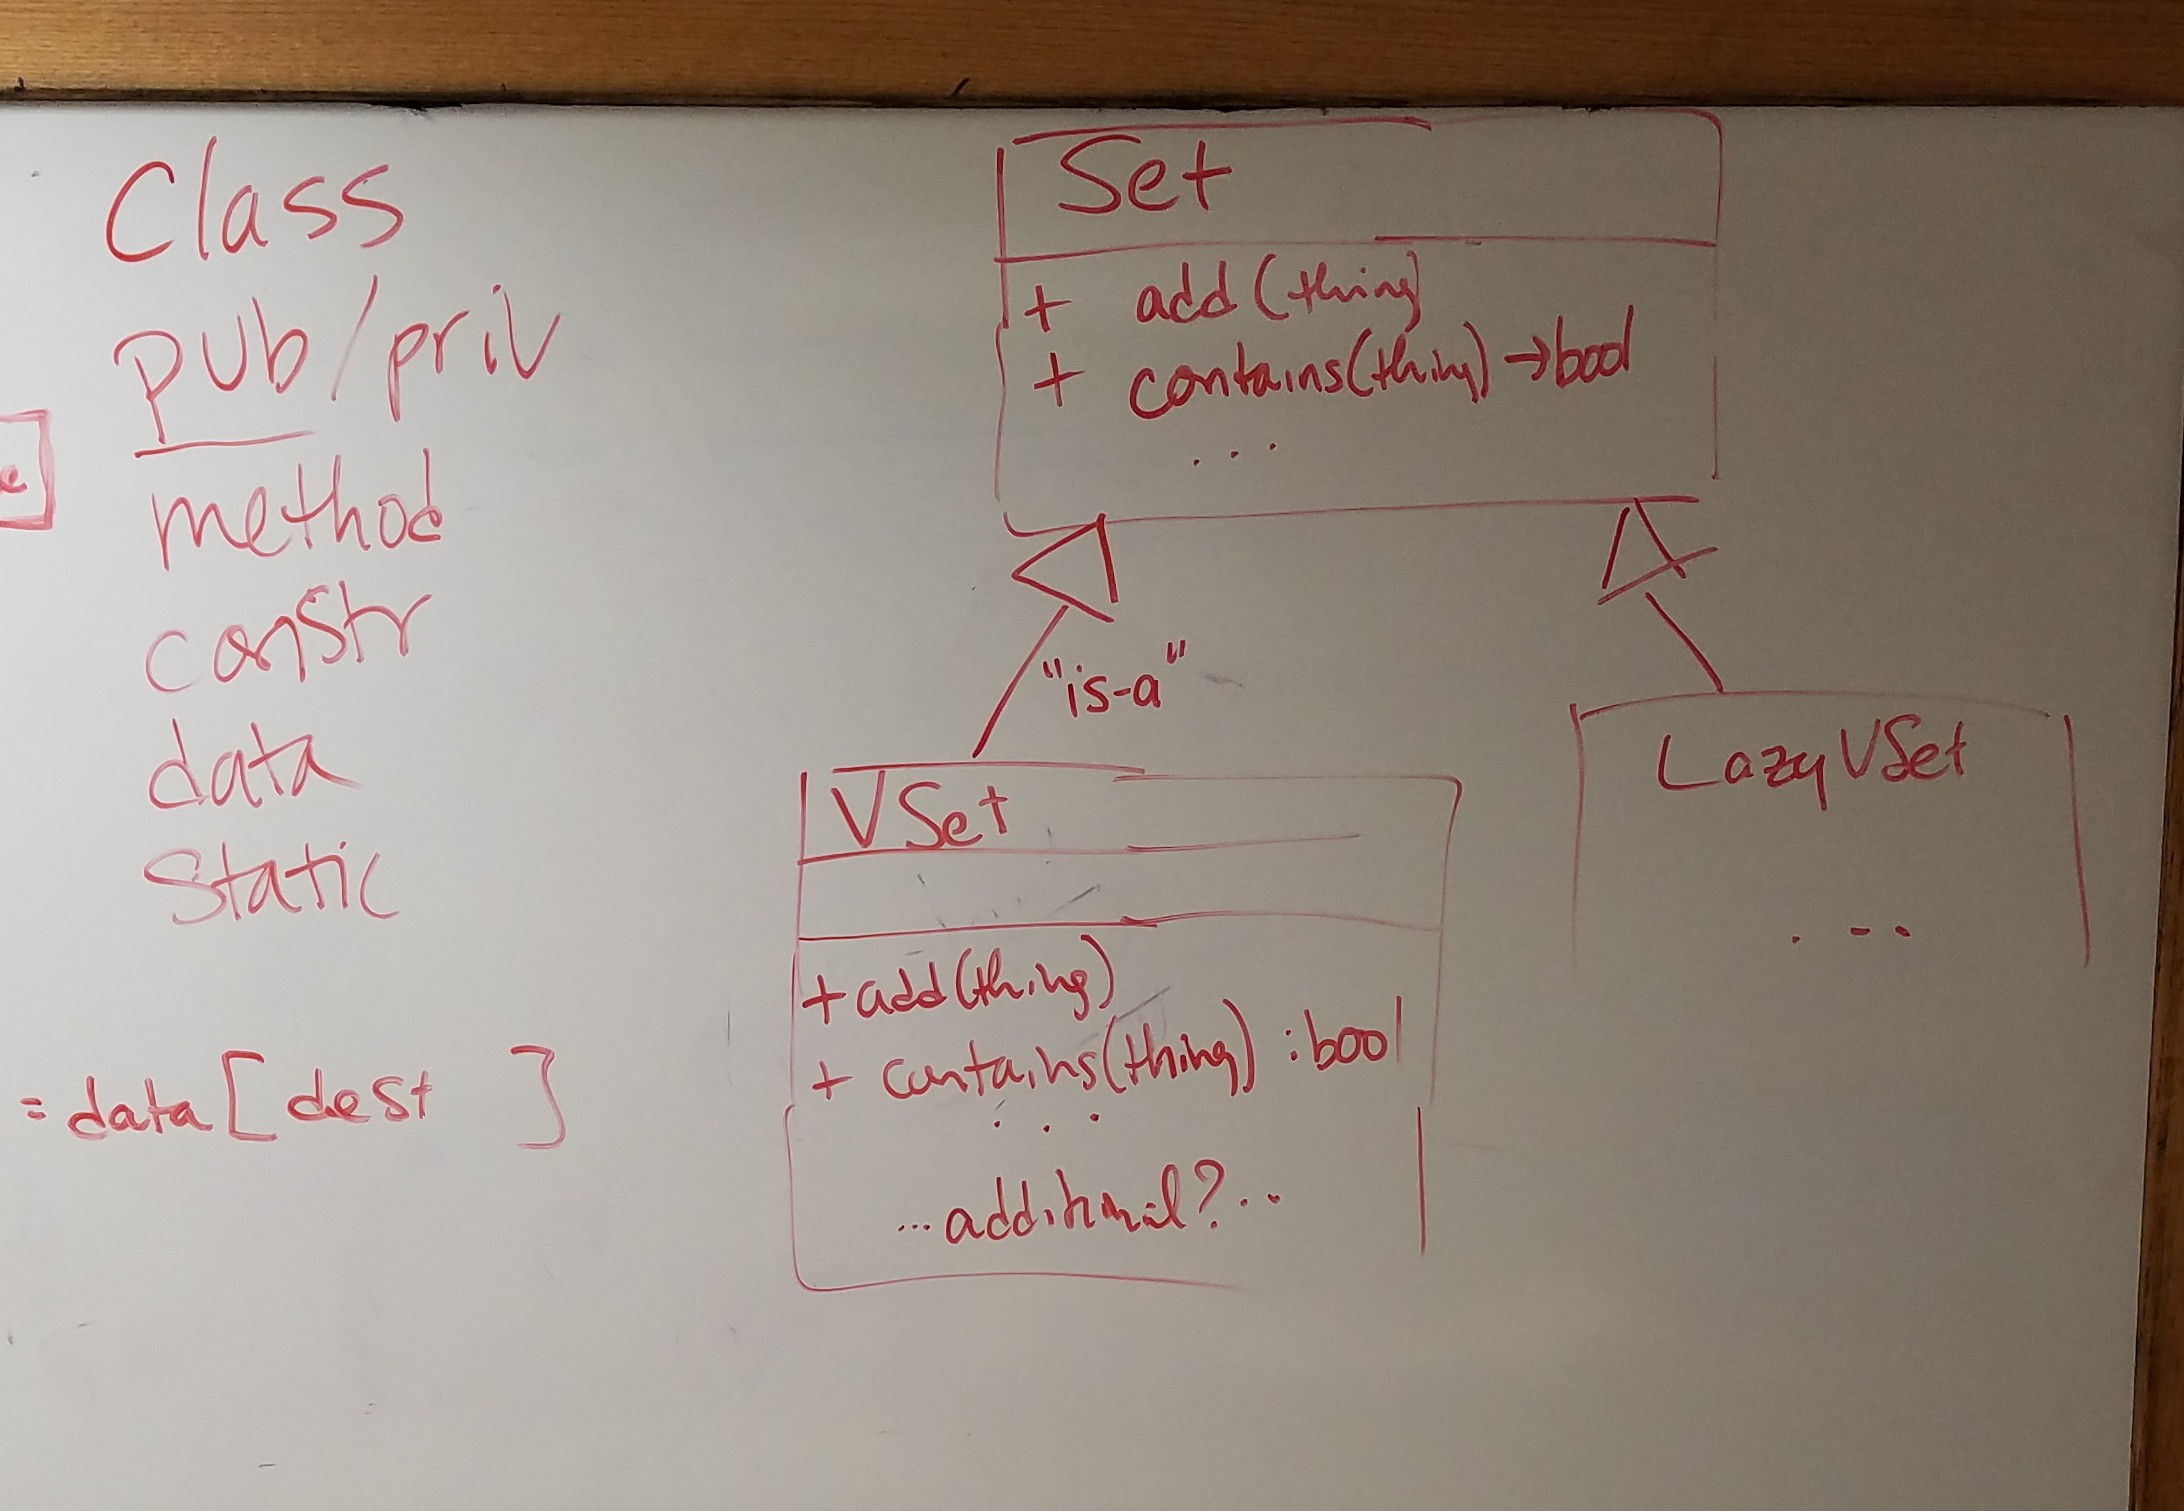 Class
pub/priv
method
constr
data
Static
= data [ dest ]
Set
+ add (thing)
+ contains(thing) → bool
...
"is-a"
VSet
+ add (thing)
+ contains(thing) : bool
...
... additional? ...
LazyVSet
...